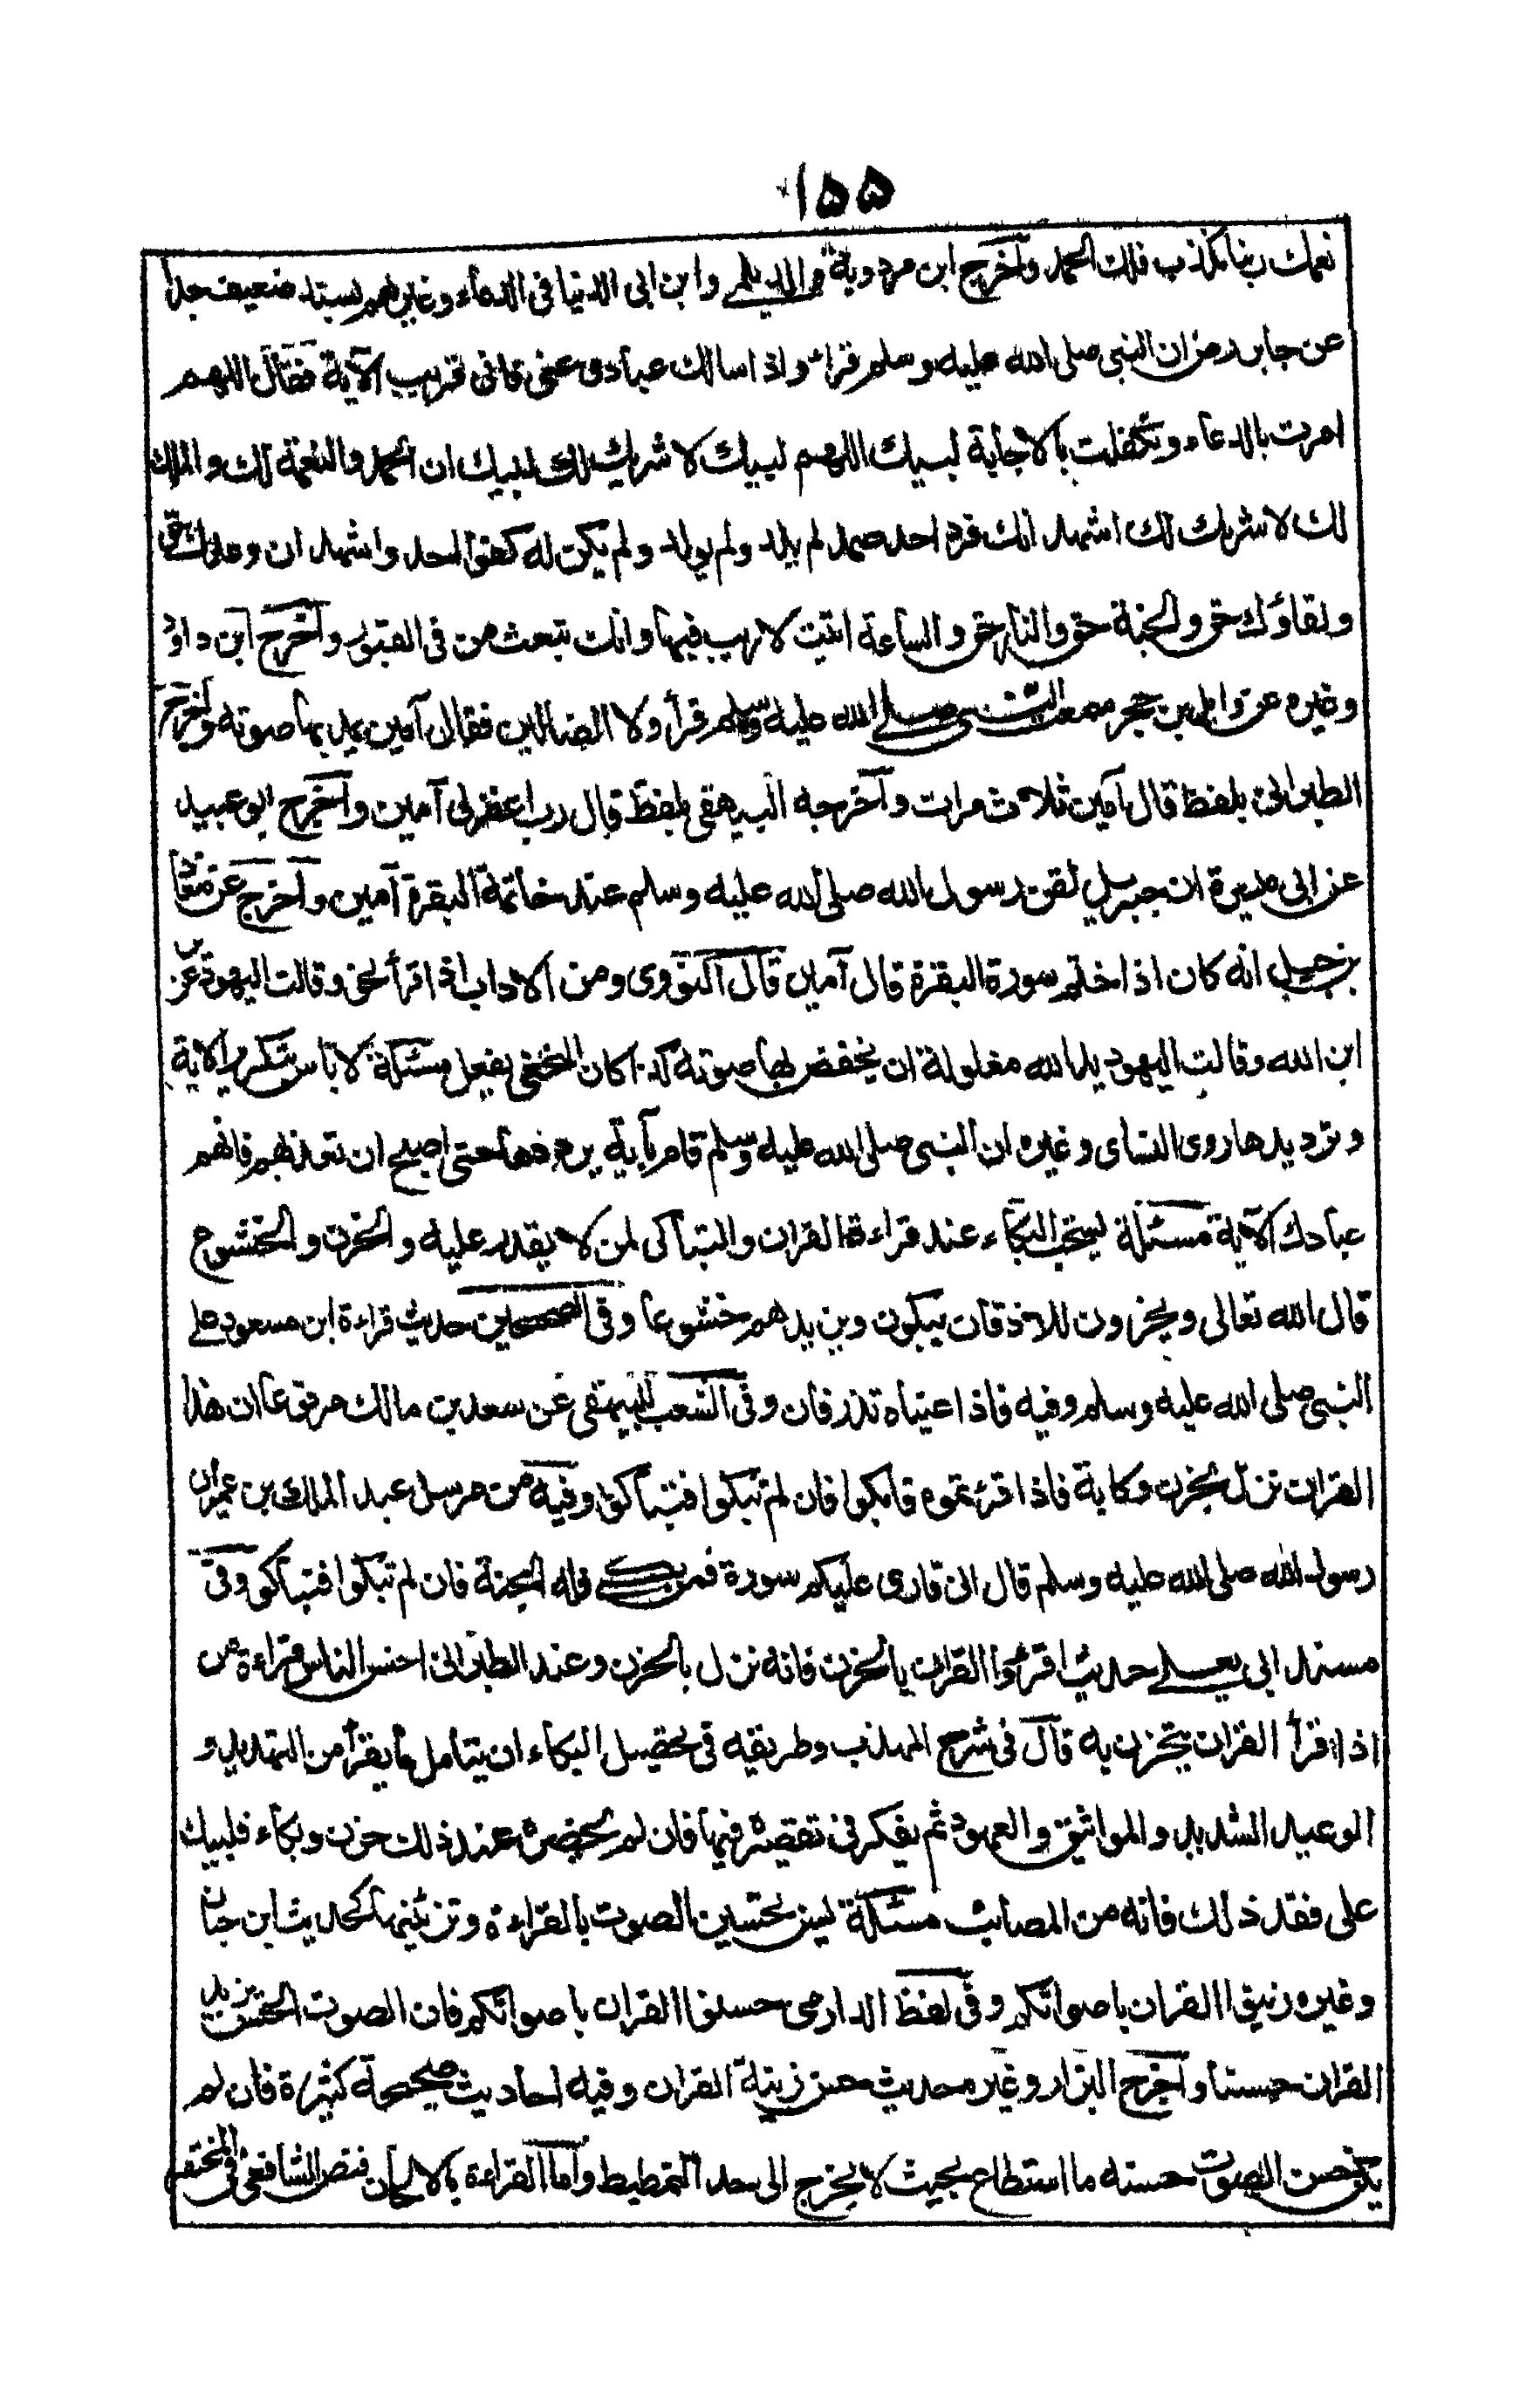 ١٥٥
نعمك ربنا نكذب فلك الحمد وأخرج ابن مردوية والديلمي وابن ابى الدنيا فى الدعاء وغيرهم بسند ضعيف جدا
عن جابر رض ان النبى صلى الله عليه وسلم قراء واذا سالك عبادى عنى فانى قريب الآية فقال اللهم
امرت بالدعاء وتكفلت بالاجابة لبيك اللهم لبيك لا شريك لك لبيك ان الحمد والنعمة لك والملك
لك لا شريك لك اشهد انك فرد احد صمد لم يلد ولم يولد ولم يكن له كفوا احد واشهد ان وعدك حق
ولقاؤك حق والجنة حق والنار حق والساعة اتية لا ريب فيها وانك تبعث من فى القبور وأخرج ابن داود
وغيره عن وايل بن حجر سمعت النبى صلے الله عليه وسلم قرأ ولا الضالين فقال آمين يمد بها صوته وأخرج
الطبرانى بلفظ قال آمين ثلاث مرات وآخرجه البيهقى بلفظ قال رب اغفرلى آمين وأخرج ابو عبيد
عن ابى ميسرة ان جبريل لقن رسول الله صلى الله عليه وسلم عند خاتمة البقرة آمين وأخرج عن معاذ
بن جبل انه كان اذا ختم سورة البقرة قال آمين قال النووى ومن الاداب اذا قرأ نحو وقالت اليهود عزير
ابن الله وقالت اليهود يد الله مغلولة ان يخفض بها صوته كذا كان النخعى يفعل مسئلة لا باس بتكرير الاية
وترديدها روى النساى وغيره ان النبى صلى الله عليه وسلم قام بآية يرددها حتى اصبح ان تعذبهم فانهم
عبادك الآية مسئلة يستحب البكاء عند قراءة القران والتباكى لمن لا يقدر عليه والحزن والخشوع
قال الله تعالى ويخرون للاذقان يبكون ويزيدهم خشوعا وفى الصحيحين حديث قراءة ابن مسعود على
النبى صلى الله عليه وسلم وفيه فاذا عيناه تذرفان وفى الشعب للبيهقى عن سعد بن مالك مرفوعا ان هذا
القران نزل بحزن وكابة فاذا قرئتموه فابكوا فان لم تبكوا فتباكوا وفيه من مرسل عبد الملك بن عمير ان
رسول الله صلى الله عليه وسلم قال انى قارى عليكم سورة فمن بكے فله الجنة فان لم تبكوا فتباكوا وفى
مسند ابى يعلے حديث اقرؤا القران بالحزن فانه نزل بالحزن وعند الطبرانى احسن الناس قراءة من
اذا قرأ القران يتحزن به قال فى شرح المهذب وطريقه فى تحصيل البكاء ان يتامل ما يقرأ من التهديد و
الوعيد الشديد والمواثيق والعهود ثم يفكر فى تقصيره فيها فان لم يحضره عند ذلك حزن وبكاء فليبك
على فقد ذلك فانه من المصائب مسئلة يسن تحسين الصوت بالقراءة وتزئينها كحديث ابن حبان
وغيره زينوا القران باصواتكم وفى لفظ الدارمى حسنوا القران باصواتكم فان الصوت الحسن يزيد
القران حسنا وأخرج البزار وغيره حديث حسن زينة القران وفيه احاديث صحيحة كثيرة فان لم
يكن حسن الصوت حسنه ما استطاع بحيث لا يخرج الى حد التمطيط وأما القراءة بالالحان فنص الشافعى فى المختصر